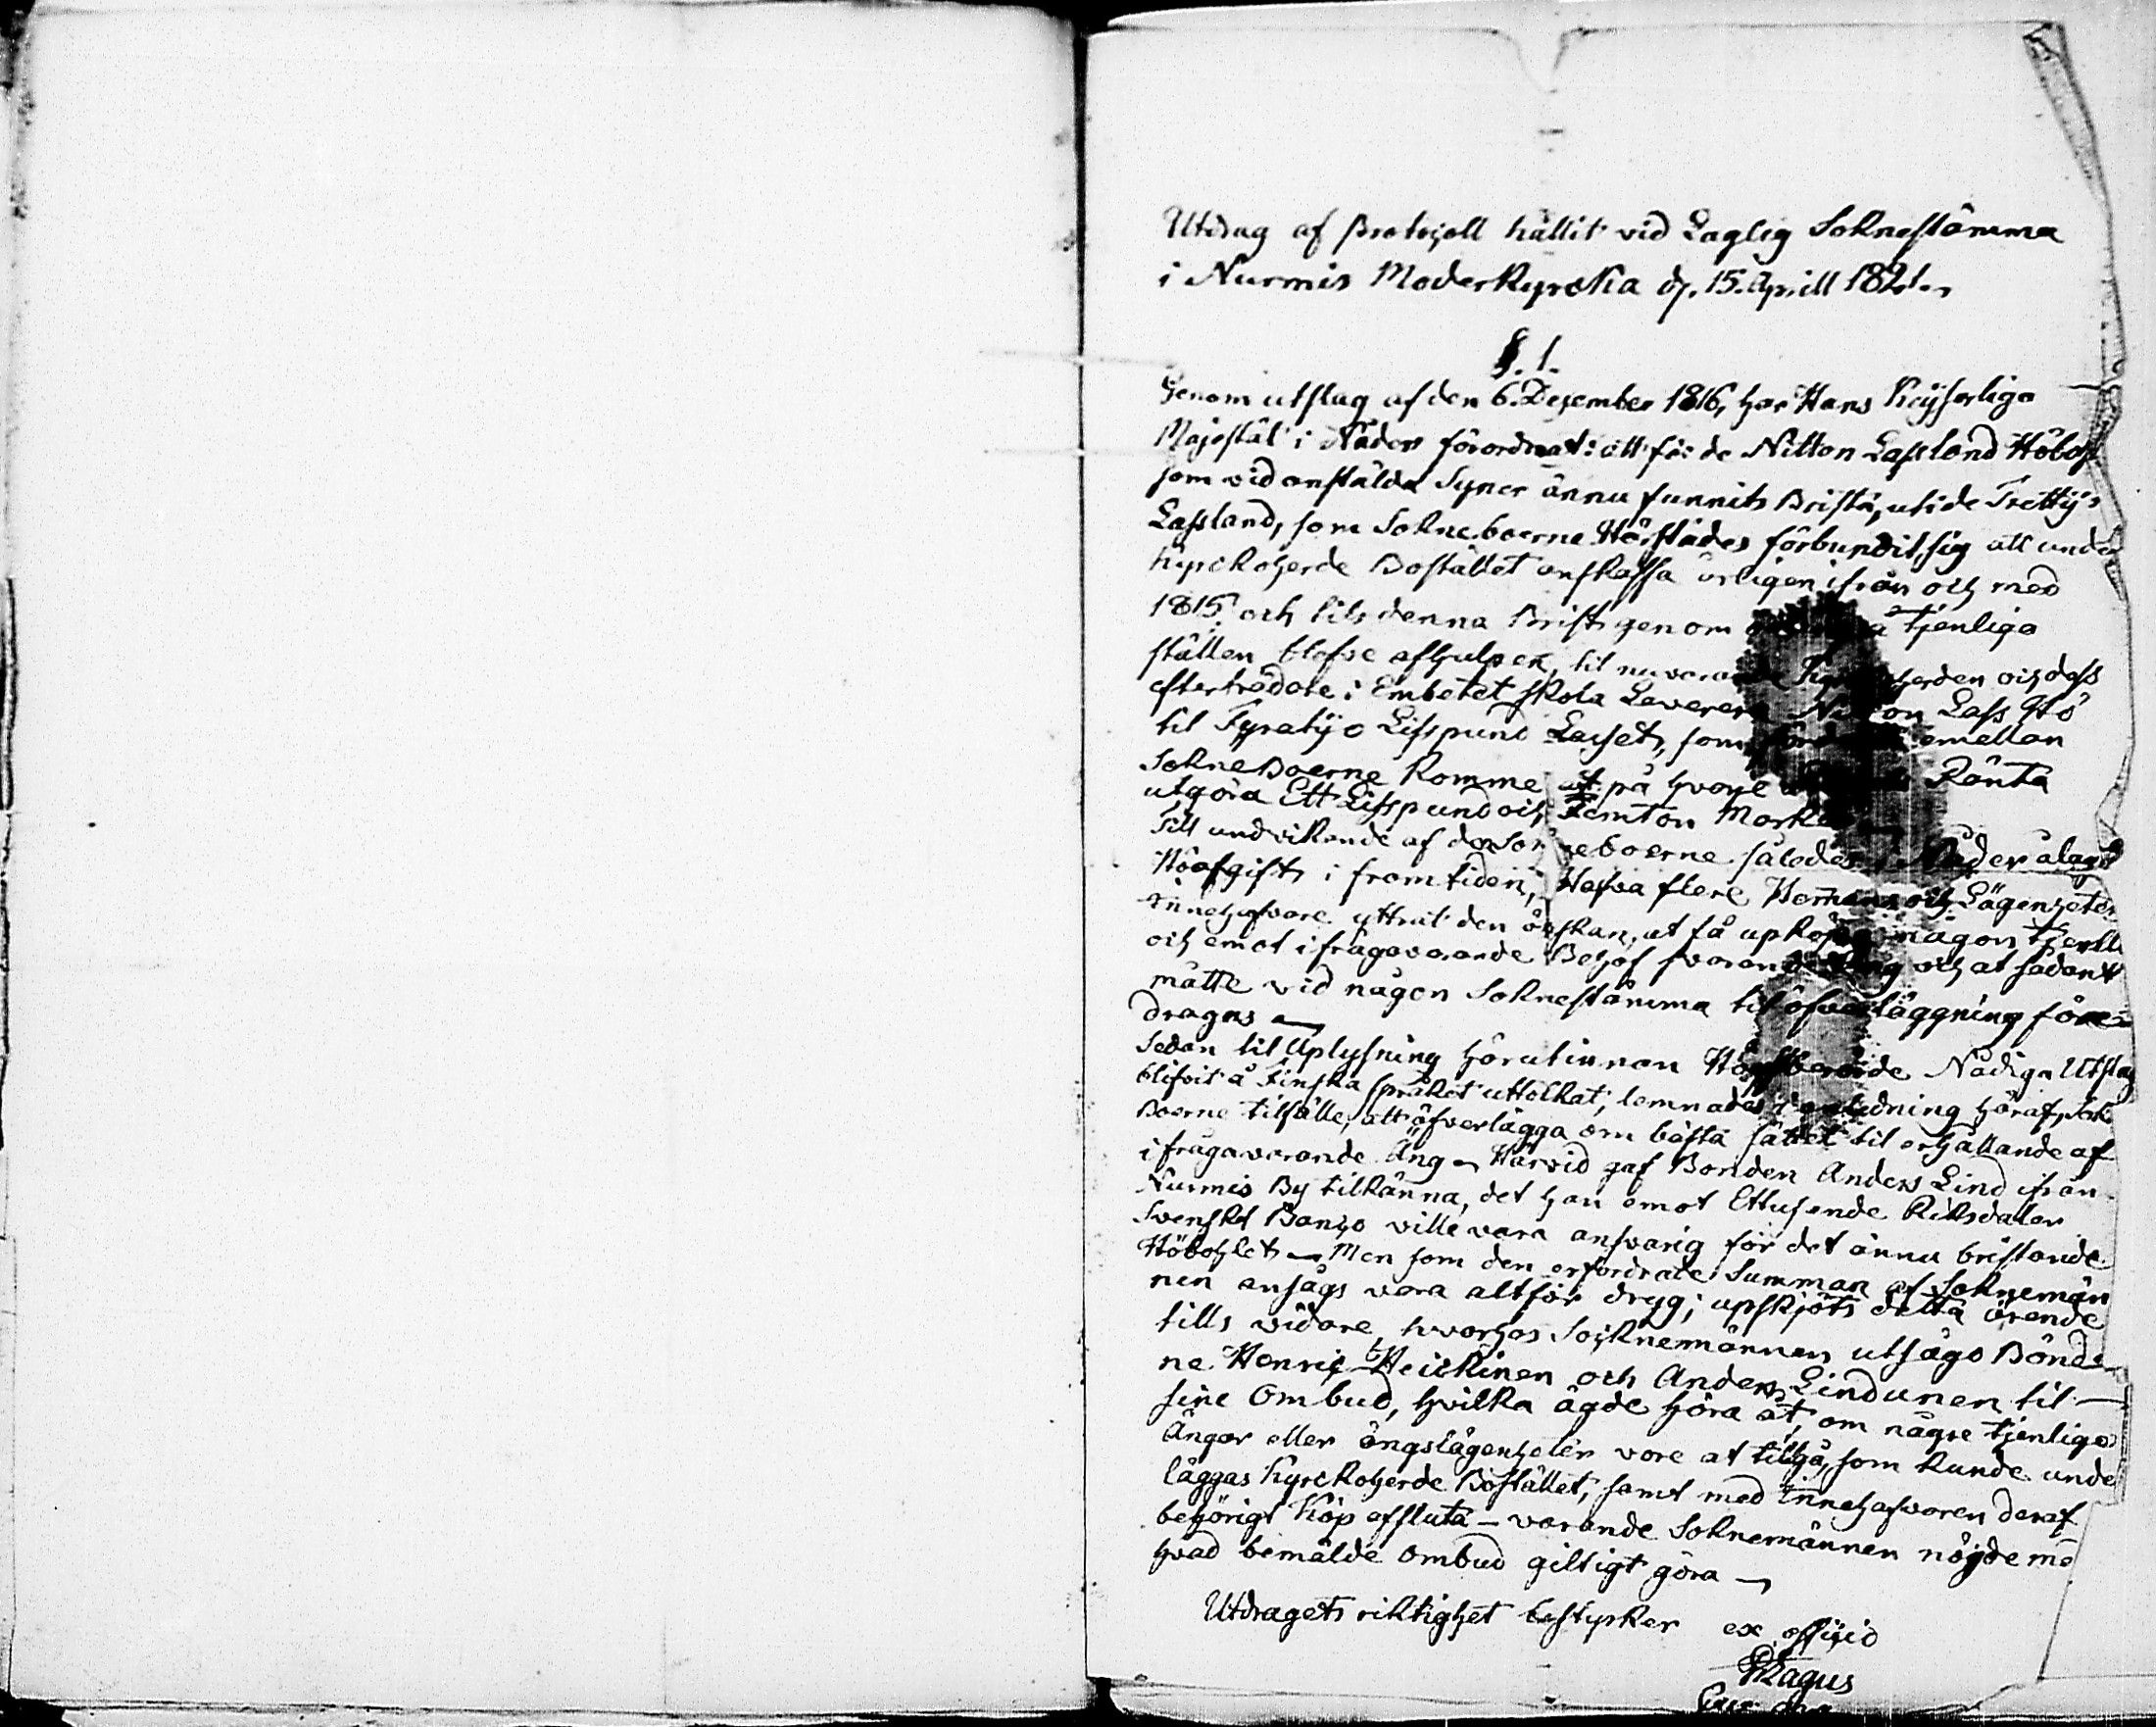 Utdrag af Protocoll hållit vid Laglig Soknestämma
i Nurmis Moderkyrcka d. 15. Aprill 1821.
§. 1.
Genom utslag af den 6. Dezember 1816, har Hans Keijserliga
Majestät i Nåder förordnat: att för de Nitton Lassland Höbol
som vid anstälda Syner ännu funnits Brista, uti de Trettijo
Lassland, som Sokneboerne Härstädes förbundit sig att under
Kyrckoherde Bostället anskaffa årligen ifrån och med
1815. och tils denna Brist genom tjenliga
ställen blefve afhulpen, til nuvarande Kyrckoherden och dess
efterträdare i Embetet skola Leverera Nitton Lass Hö
til Fyratijo Lisspund Lasset, som emellan
SokneBoerne komme at på hvarje Ränta
utgöra Ett Lisspund och Femton Marker
Till undvikande af den Sokneboerne således i Nåder ålagde
Höafgift i framtiden, Hafva flere Hemans och Lägenheters
innehafvare yttrat den önskan, at få upköpa någon tjenlig
och emot ifrågavarande Behof svarande Äng och at sådant
måtte vid någon Soknestämma til öfverläggning före-
dragas
Sedan til Uplysning härutinnan Högstberörde Nådiga Utslag
blifvit å Finska språket uttolkat, lemnades i anledning häraf, Sok
Boerne tilfälle, att öfverlägga om bästa sättet til erhållande af
ifrågavarande Äng. Härvid gaf Bonden Anders Lind ifrån
Nurmis By tilkänna, det han emot Ettusende Riksdaler
Svenskt Banco ville vara ansvarig för det ännu bristande
Höbohlet. Men som den erfordrade Summan af Soknemän
nen ansågs vara altför dryg; upskjöts detta ärende
tills vidare, hvarhos Socknemännen utsågo Bönder
ne Henric Heickinen och Anders Lindunen til
sine Ombud, hvilka ägde höra åt, om någre tjenlige
Ängar eller ängslägenheter vore at tillgå, som kunde unde
läggas Kyrckoherde Bostället, samt med Innehafvaren deraf
behörigt Köp afsluta – varande Soknemännen nöjde me
hvad bemälde Ombud giltigt göra
Utdragets riktighet bestyrker ex officio
Magus